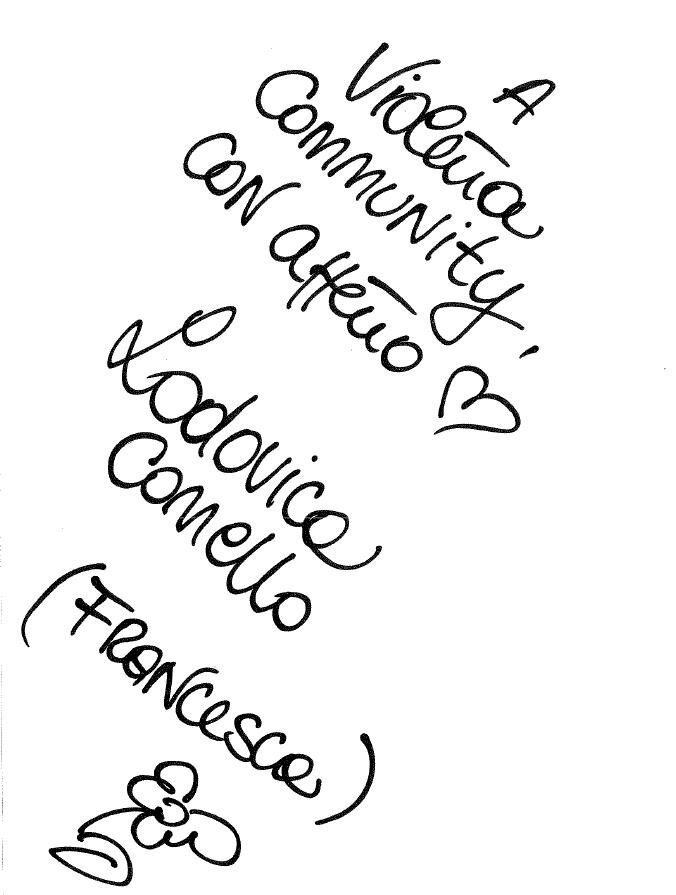 A
Violetta
Community,
con affetto ♡
Lodovica
Comello
(Francesca)